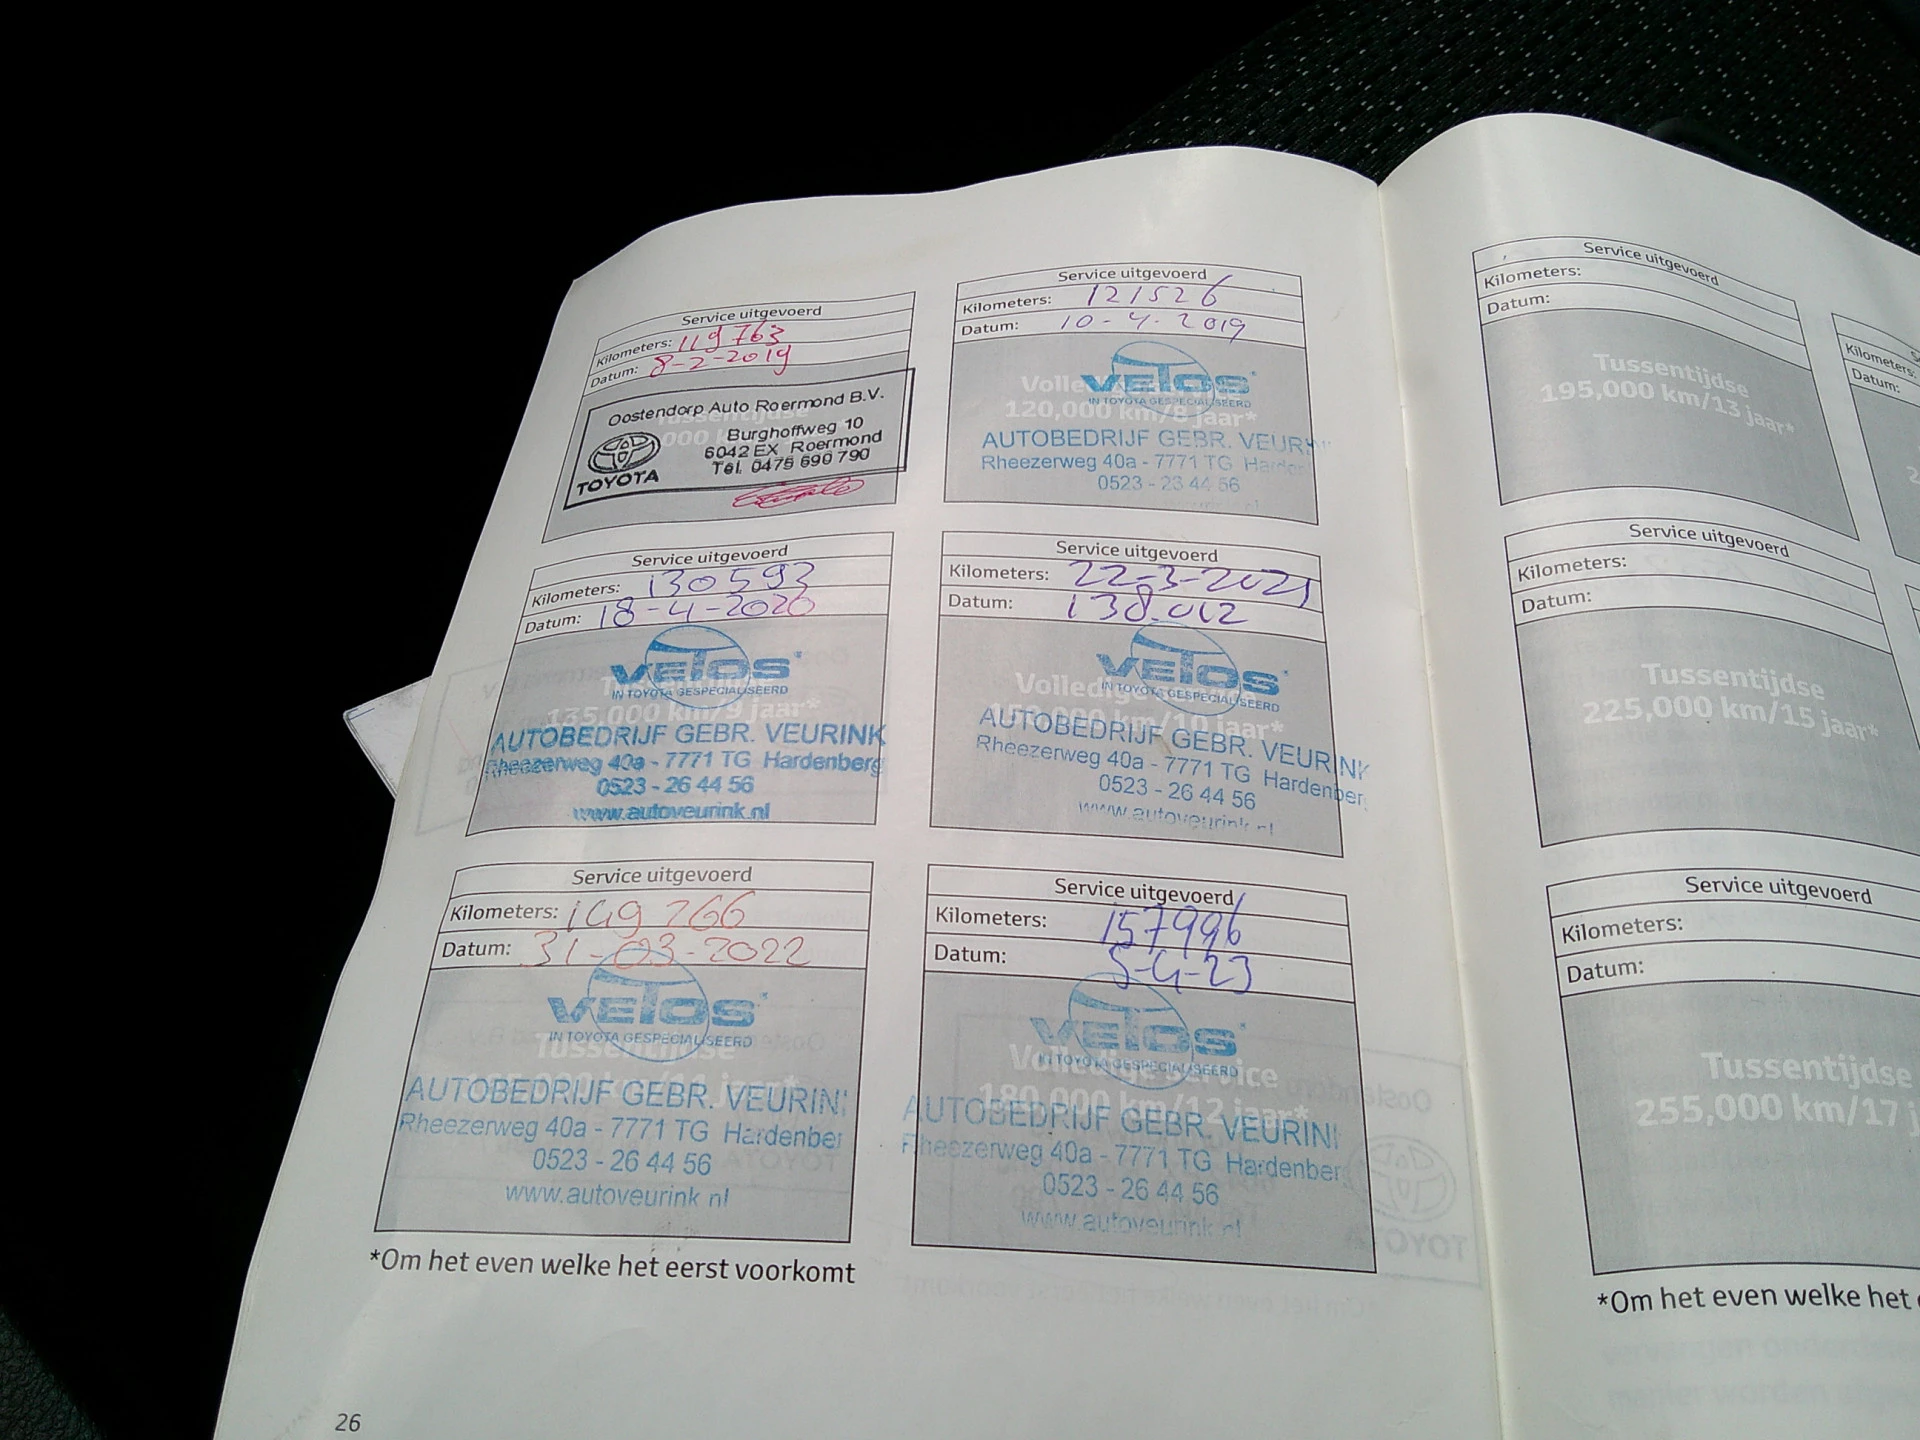 Service uitgevoerd
Kilometers: 119763
Datum: 8-2-2019
Oostendorp Auto Roermond B.V.
Burghoffweg 10
6042 EX Roermond
Tel. 0475 690 790
TOYOTA
Service uitgevoerd
Kilometers: 121526
Datum: 10-4-2019
VETOS
IN TOYOTA GESPECIALISEERD
120,000 km/8 jaar*
AUTOBEDRIJF GEBR. VEURIN
Rheezerweg 40a - 7771 TG Harden
0523 - 26 44 56
Service uitgevoerd
Kilometers: 130593
Datum: 18-4-2020
VETOS
IN TOYOTA GESPECIALISEERD
135,000 km/9 jaar*
AUTOBEDRIJF GEBR. VEURINK
Rheezerweg 40a - 7771 TG Hardenberg
0523 - 26 44 56
www.autoveurink.nl
Service uitgevoerd
Kilometers: 22-3-2021
Datum: 138.012
VETOS
IN TOYOTA GESPECIALISEERD
Volledige
150,000 km/10 jaar*
AUTOBEDRIJF GEBR. VEURINK
Rheezerweg 40a - 7771 TG Hardenber
0523 - 26 44 56
www.autoveurink.nl
Service uitgevoerd
Kilometers: 149766
Datum: 31-03-2022
VETOS
IN TOYOTA GESPECIALISEERD
Tussentijdse
AUTOBEDRIJF GEBR. VEURIN
Rheezerweg 40a - 7771 TG Hardenber
0523 - 26 44 56
www.autoveurink.nl
Service uitgevoerd
Kilometers: 157996
Datum: 5-4-23
VETOS
IN TOYOTA GESPECIALISEERD
Volledige Service
180,000 km/12 jaar*
AUTOBEDRIJF GEBR. VEURIN
Rheezerweg 40a - 7771 TG Hardenber
0523 - 26 44 56
www.autoveurink.nl
*Om het even welke het eerst voorkomt
26
Service uitgevoerd
Kilometers:
Datum:
Tussentijdse
195,000 km/13 jaar*
Kilometers:
Datum:
Service uitgevoerd
Kilometers:
Datum:
Tussentijdse
225,000 km/15 jaar*
Service uitgevoerd
Kilometers:
Datum:
Tussentijdse
255,000 km/17 j
*Om het even welke het